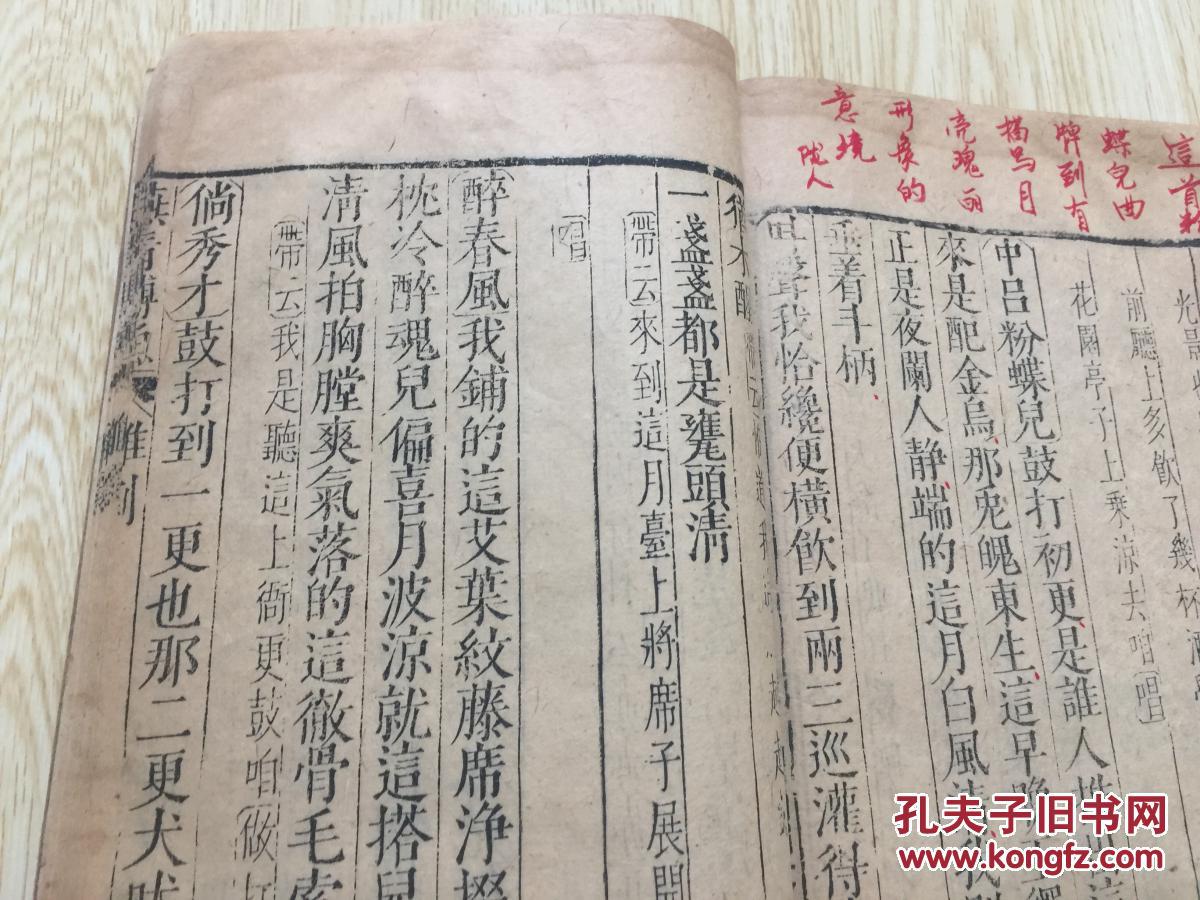 這首
蝶兒曲
牌到有
描写月
亮瑰丽
形象的
意境
陇人
前聽上多飲了幾杯
花園亭子上乘涼去咱(唱
中呂粉蝶兒鼓打初更是誰人
來是配金烏那兎魄東生這早晚
正是夜闌人静端的這月白風清我
垂着斗柄
我恰纔便橫飲到兩三巡灌得
一盞盞都是甕頭淸
帶云來到這月臺上將席子展開
唱
醉春風我鋪的這艾葉紋藤席浄
枕冷醉魂兒偏喜月波凉就這搭兒
清風拍胸膛爽氣落的這徹骨毛
帶云我是聽這上衙更鼓咱做
倘秀才鼓打到一更也那二更犬吠
雜劇
孔夫子旧书网
www.kongfz.com